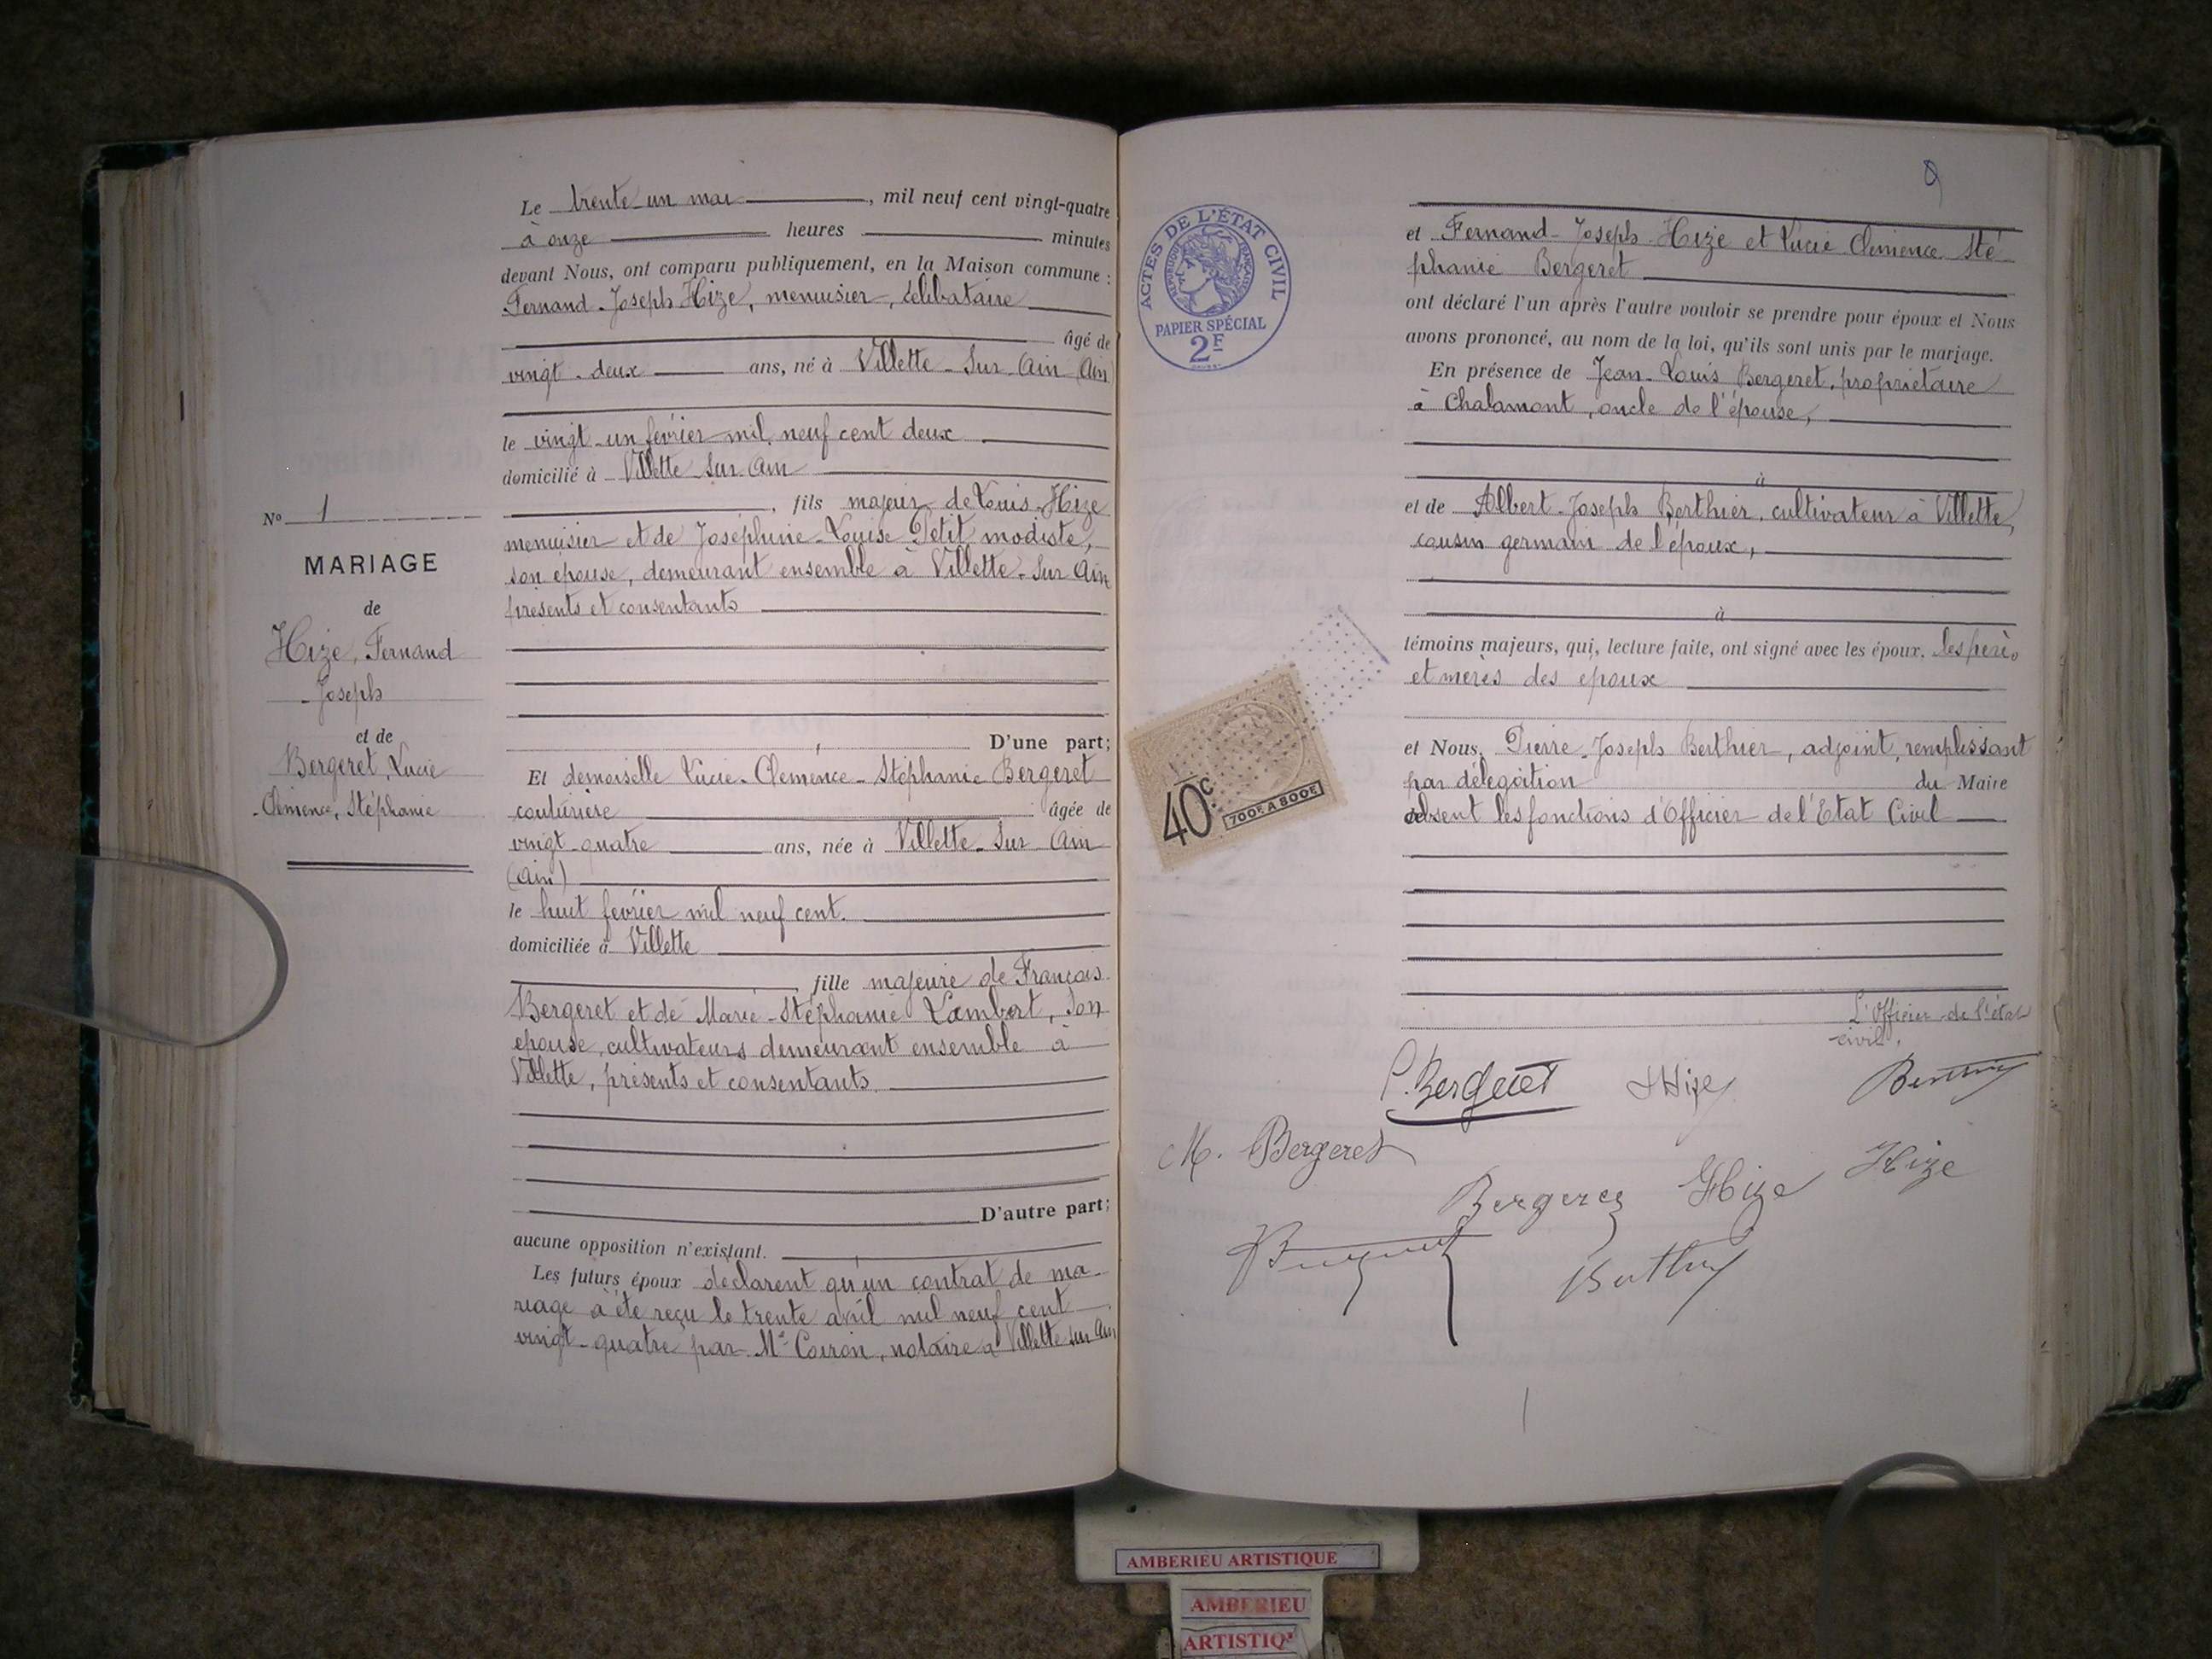 Le trente un mai, mil neuf cent vingt-quatre
à onze heures minutes
devant Nous, ont comparu publiquement, en la Maison commune :
Fernand-Joseph Hize, menuisier, célibataire
âgé de
vingt-deux ans, né à Villette-Sur-Ain (Ain)
le vingt-un février mil neuf cent deux
domicilié à Villette Sur Ain
, fils majeur de Louis Hize
menuisier et de Joséphine-Louise Petit modiste,
son épouse, demeurant ensemble à Villette-Sur Ain
présents et consentants
D'une part;
Et demoiselle Lucie-Clemence-Stéphanie Bergeret
couturière âgée de
vingt-quatre ans, née à Villette-Sur Ain
(Ain)
le huit février mil neuf cent.
domiciliée à Villette
fille majeure de François
Bergeret et de Marie-Stéphanie Lambert, son
épouse, cultivateurs demeurant ensemble à
Villette, présents et consentants.
D'autre part;
aucune opposition n'existant.
Les futurs époux déclarent qu'un contrat de ma-
riage à été reçu le trente avril mil neuf cent
vingt-quatre par Me Coiron, notaire à Villette sur Ain
No 1
MARIAGE
de
Hize, Fernand
Joseph
et de
Bergeret, Lucie
Clémence, Stéphanie
ACTES DE L'ÉTAT CIVIL
RÉPUBLIQUE FRANÇAISE
PAPIER SPÉCIAL
2F
40c
700F A 800F
et Fernand-Joseph Hize et Lucie Clemence Sté-
phanie Bergeret
ont déclaré l'un après l'autre vouloir se prendre pour époux et Nous
avons prononcé, au nom de la loi, qu'ils sont unis par le mariage.
En présence de Jean-Louis Bergeret, propriétaire
à Chalamont, oncle de l'épouse,
à
et de Albert-Joseph Berthier, cultivateur à Villette,
cousin germain de l'époux,
à
témoins majeurs, qui, lecture faite, ont signé avec les époux, les pères
et mères des époux
et Nous, Pierre-Joseph Berthier, adjoint, remplissant
par délégation du Maire
absent les fonctions d'Officier de l'Etat Civil
L'Officier de l'état
civil,
Bergeret Hize
M. Bergeret
Bergeret Hize Hize
AMBERIEU ARTISTIQUE
AMBERIEU
ARTISTIQ